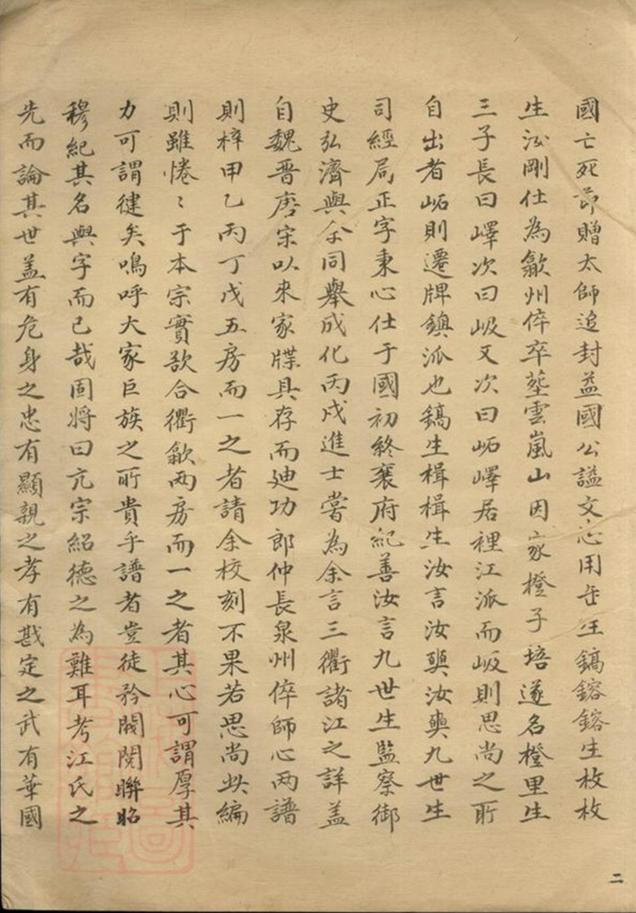 國亡死節贈太師追封益國公謚文忠用缶生鎬鎔鎔生枚枚
生汯剛仕為歙州倅卒塟雲嵐山因家橙子培遂名橙里生
三子長曰嶧次曰岋又次曰岯嶧居裡江派而岋則思尚之所
自出者岯則遷牌鎮派也鎬生楫楫生汝言汝奭汝奭九世生
司經局正字秉心仕于國初終襄府紀善汝言九世生監察御
史弘濟與余同舉成化丙戌進士嘗為余言三衢諸江之詳盖
自魏晋唐宋以來家牒具存而廸功郎仲長泉州倅師心兩譜
則梓甲乙丙丁戊五房而一之者請余校刻不果若思尚此編
則雖惓〻于本宗實欲合衢歙兩房而一之者其心可謂厚其
力可謂徤矣嗚呼大家巨族之所貴乎譜者豈徒矜閥閱聮昭
穆紀其名與字而已哉固將曰亢宗紹德之為難耳考江氏之
先而論其世盖有危身之忠有顯親之孝有戡定之武有華國
二